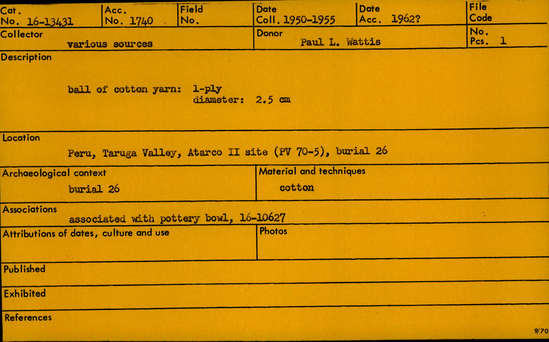 Cat. No. 16-13431
Acc. No. 1740
Field No.
Date Coll. 1950-1955
Date Acc. 1962?
File Code
Collector various sources
Donor Paul L. Wattis
No. Pcs. 1
Description
ball of cotton yarn: 1-ply
diameter: 2.5 cm
Location
Peru, Taruga Valley, Atarco II site (PV 70-5), burial 26
Archaeological context
burial 26
Material and techniques
cotton
Associations
associated with pottery bowl, 16-10627
Attributions of dates, culture and use
Photos
Published
Exhibited
References
9/70